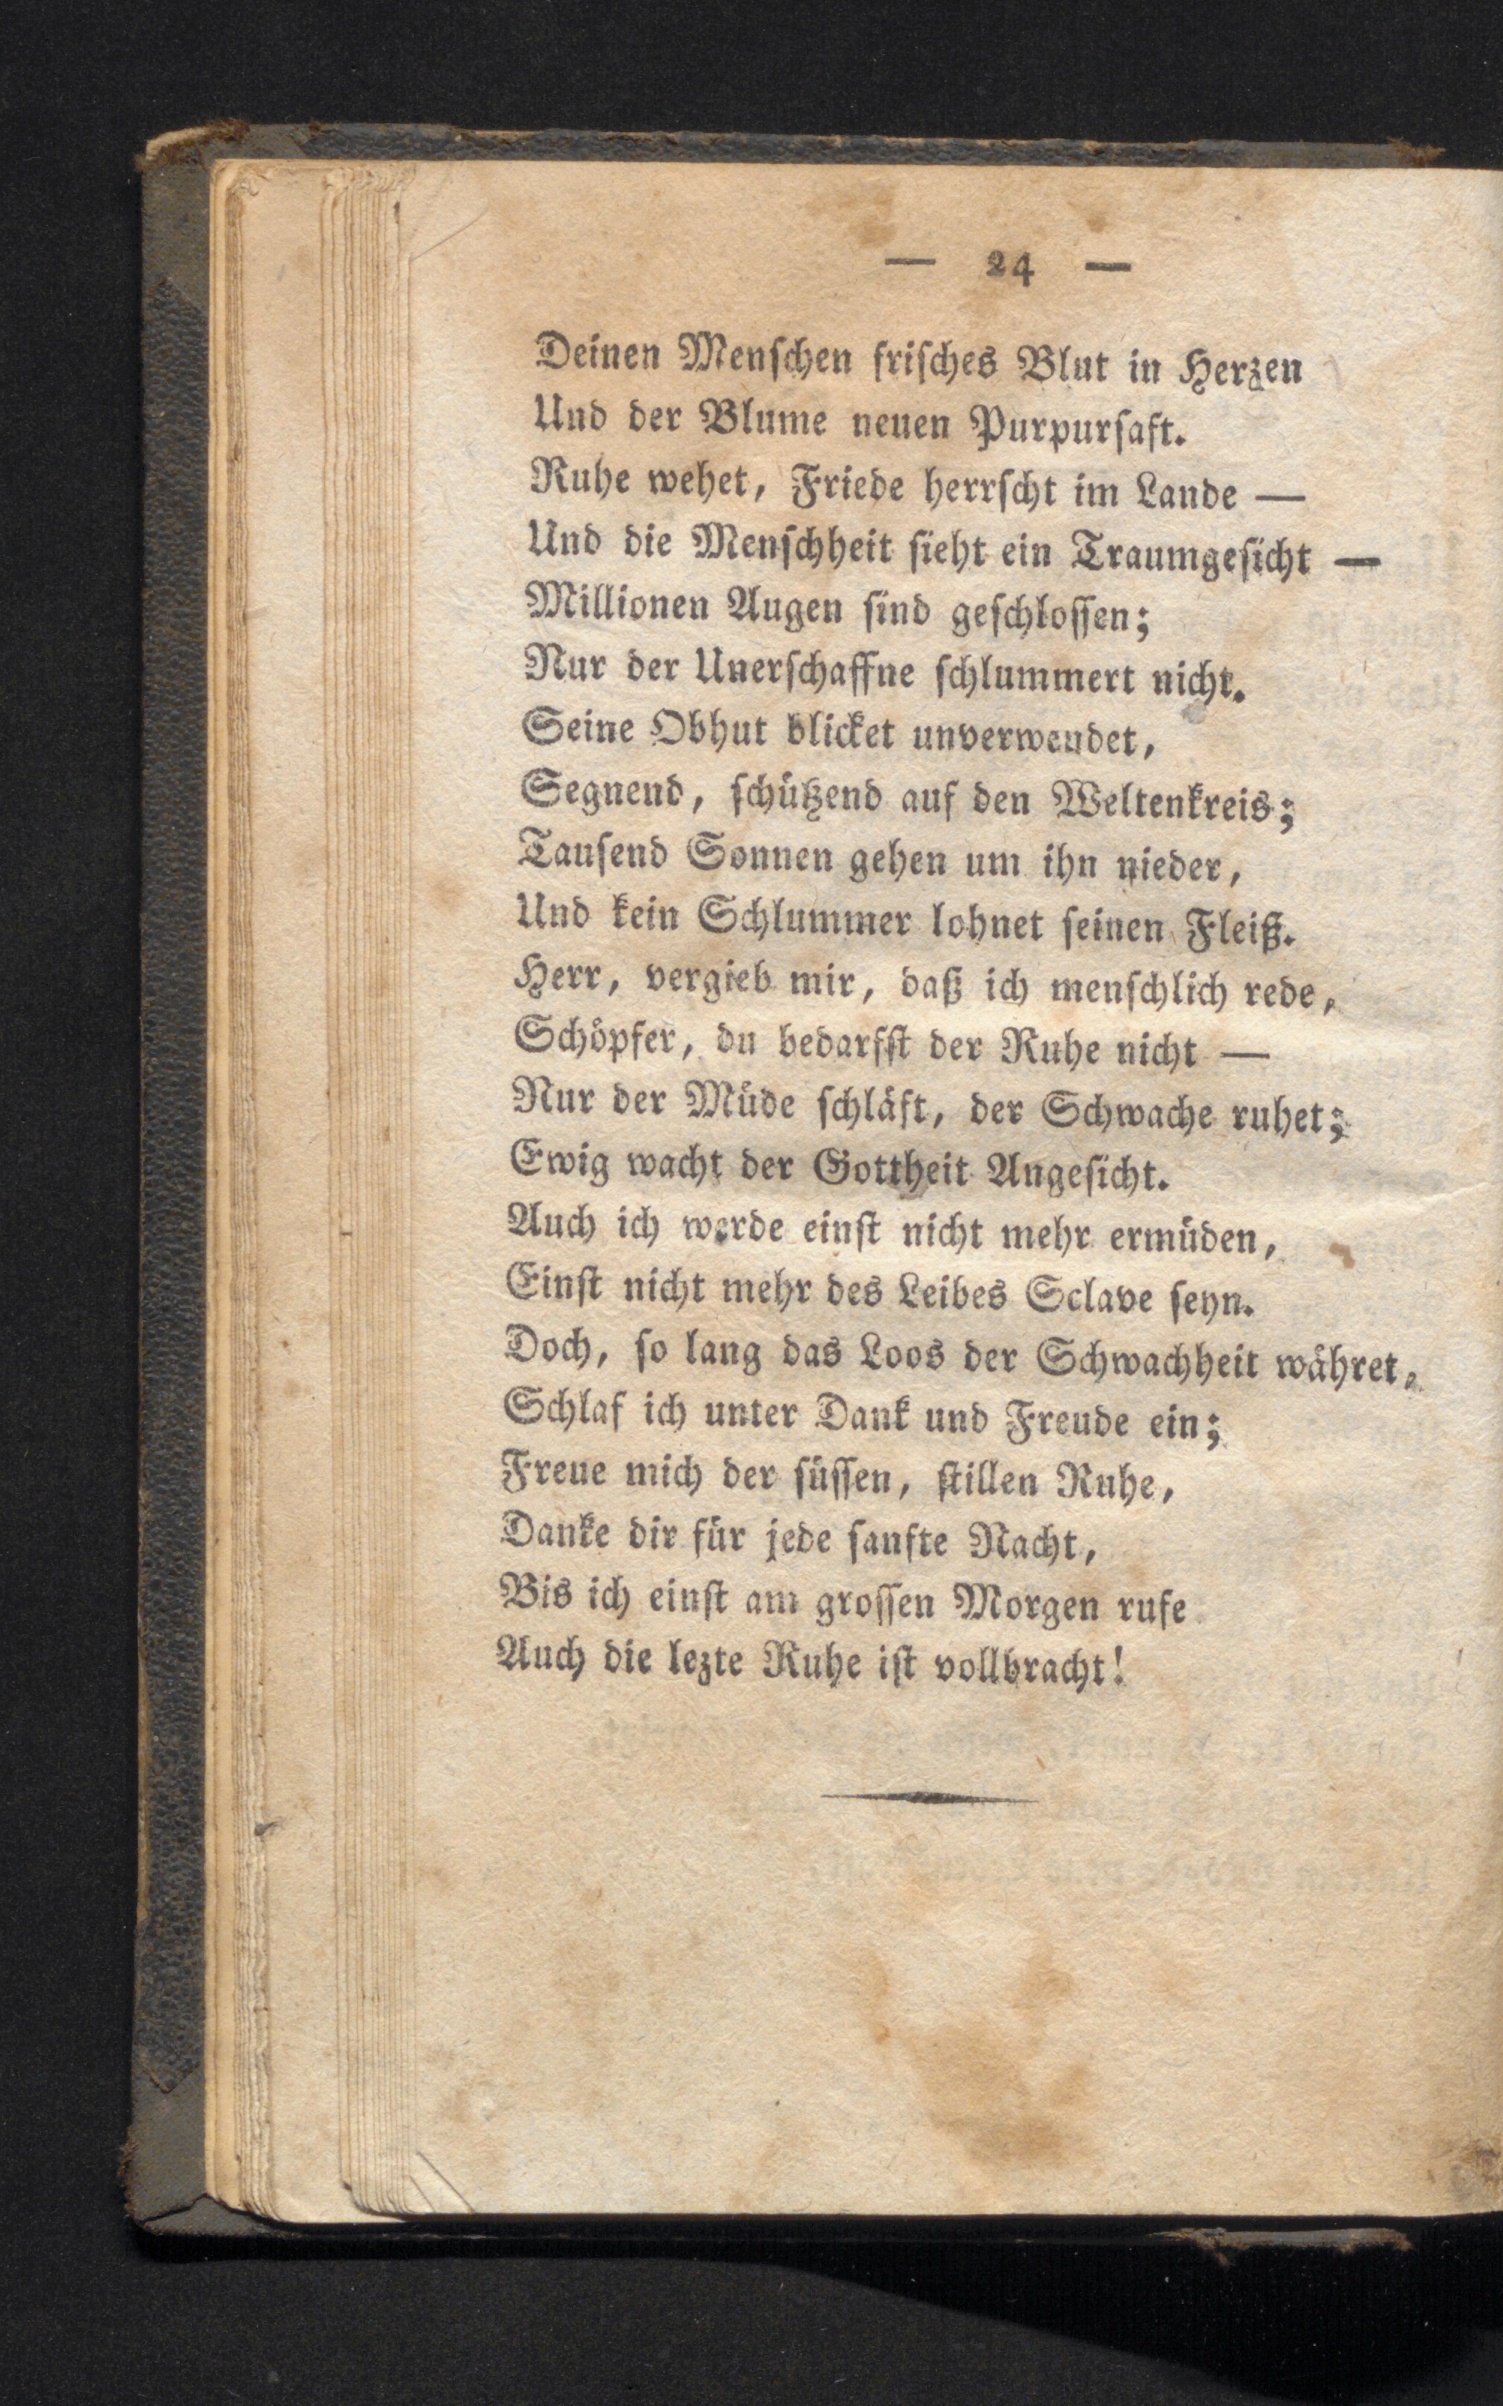 — 24 —
Deinen Menschen frisches Blut in Herzen
Und der Blume neuen Purpursaft.
Ruhe wehet, Friede herrscht im Lande —
Und die Menschheit sieht ein Traumgesicht —
Millionen Augen sind geschlossen;
Nur der Unerschaffne schlummert nicht.
Seine Obhut blicket unverwendet,
Segnend, schützend auf den Weltenkreis;
Tausend Sonnen gehen um ihn nieder,
Und kein Schlummer lohnet seinen Fleiß.
Herr, vergieb mir, daß ich menschlich rede,
Schöpfer, du bedarfst der Ruhe nicht —
Nur der Müde schläft, der Schwache ruhet;
Ewig wacht der Gottheit Angesicht.
Auch ich werde einst nicht mehr ermüden,
Einst nicht mehr des Leibes Sclave seyn.
Doch, so lang das Loos der Schwachheit währet,
Schlaf ich unter Dank und Freude ein;
Freue mich der süssen, stillen Ruhe,
Danke dir für jede sanfte Nacht,
Bis ich einst am grossen Morgen rufe
Auch die lezte Ruhe ist vollbracht!